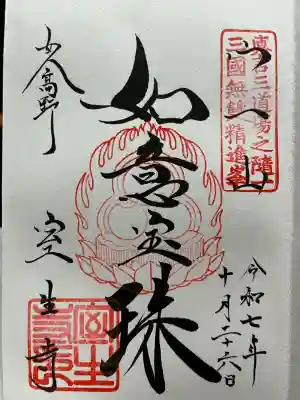 宀一山
真言三道場之隨一
三國無雙精進峯
令和七年
十月二十六日
如意宝珠
女人高野
室生寺